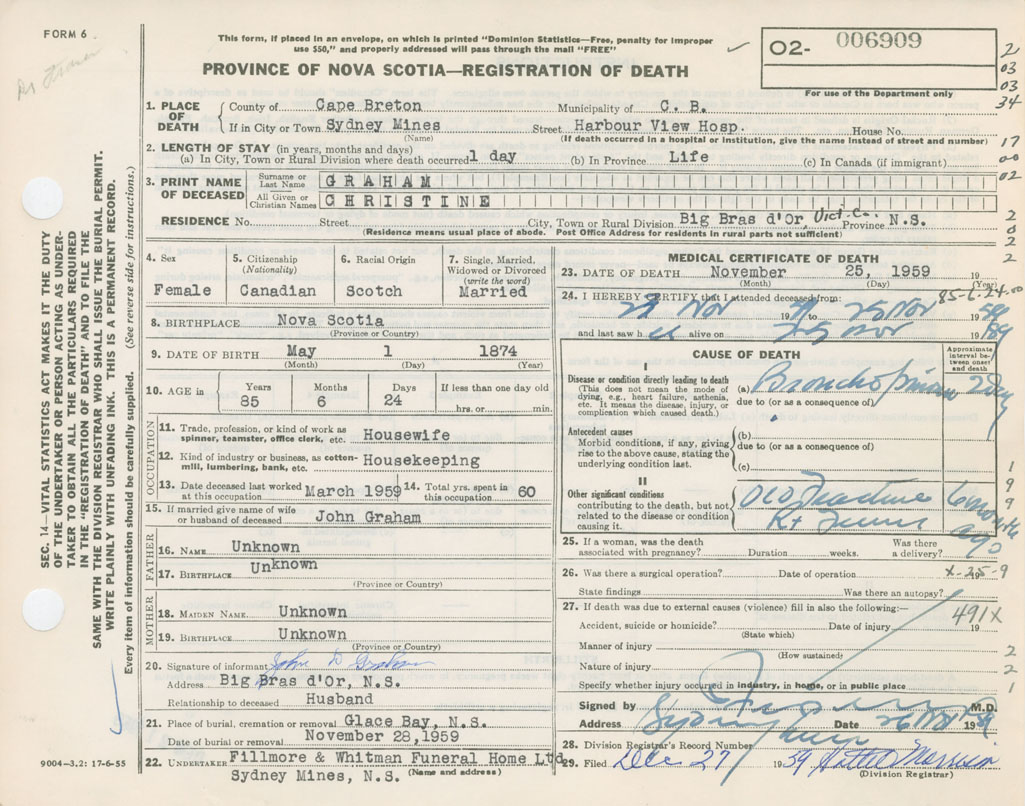 FORM 6
This form, if placed in an envelope, on which is printed "Dominion Statistics—Free, penalty for improper
use $50," and properly addressed will pass through the mail "FREE"
PROVINCE OF NOVA SCOTIA—REGISTRATION OF DEATH
O2- 006909
For use of the Department only
2
03
03
34
17
00
02
2
0
2
2
SEC. 14—VITAL STATISTICS ACT MAKES IT THE DUTY
OF THE UNDERTAKER OR PERSON ACTING AS UNDER-
TAKER TO OBTAIN ALL THE PARTICULARS REQUIRED
IN THE "REGISTRATION OF DEATH" AND TO FILE THE
SAME WITH THE DIVISION REGISTRAR WHO SHALL ISSUE THE BURIAL PERMIT.
WRITE PLAINLY WITH UNFADING INK. THIS IS A PERMANENT RECORD.
Every item of information should be carefully supplied. (See reverse side for instructions.)
1. PLACE OF DEATH
County of Cape Breton Municipality of C. B.
If in City or Town Sydney Mines Street Harbour View Hosp. House No.
(Name) (If death occurred in a hospital or institution, give the name instead of street and number)
2. LENGTH OF STAY (in years, months and days)
(a) In City, Town or Rural Division where death occurred 1 day (b) In Province Life (c) In Canada (if immigrant)
3. PRINT NAME OF DECEASED
Surname or Last Name GRAHAM
All Given or Christian Names CHRISTINE
RESIDENCE No. Street City, Town or Rural Division Big Bras d'Or, Vict. Co. Province N.S.
(Residence means usual place of abode. Post Office Address for residents in rural parts not sufficient)
4. Sex
Female
5. Citizenship
(Nationality)
Canadian
6. Racial Origin
Scotch
7. Single, Married,
Widowed or Divorced
(write the word)
Married
8. BIRTHPLACE Nova Scotia
(Province or Country)
9. DATE OF BIRTH May 1 1874
(Month) (Day) (Year)
10. AGE in
Years Months Days If less than one day old
85 6 24 hrs. or min.
OCCUPATION
11. Trade, profession, or kind of work as
spinner, teamster, office clerk, etc. Housewife
12. Kind of industry or business, as cotton-
mill, lumbering, bank, etc. Housekeeping
13. Date deceased last worked
at this occupation March 1959
14. Total yrs. spent in
this occupation 60
15. If married give name of wife
or husband of deceased John Graham
FATHER
16. NAME Unknown
17. BIRTHPLACE Unknown
(Province or Country)
MOTHER
18. MAIDEN NAME Unknown
19. BIRTHPLACE Unknown
(Province or Country)
20. Signature of informant John D Graham
Address Big Bras d'Or, N.S.
Relationship to deceased Husband
21. Place of burial, cremation or removal Glace Bay, N.S.
Date of burial or removal November 28,1959
22. UNDERTAKER Fillmore & Whitman Funeral Home Ltd
Sydney Mines, N.S. (Name and address)
9004—3.2: 17-6-55
MEDICAL CERTIFICATE OF DEATH
23. DATE OF DEATH November 25, 1959 19
(Month) (Day) (Year)
85-6-24-00
24. I HEREBY CERTIFY that I attended deceased from:
Nov 19 to 25 Nov 1959
and last saw h alive on Nov 19
CAUSE OF DEATH
Approximate
interval be-
tween onset
and death
I
Disease or condition directly leading to death
(This does not mean the mode of
dying, e.g., heart failure, asthenia,
etc. It means the disease, injury, or
complication which caused death.)
(a)
due to (or as a consequence of)
2 day
Antecedent causes
Morbid conditions, if any, giving
rise to the above cause, stating the
underlying condition last.
(b)
due to (or as a consequence of)
(c)
II
Other significant conditions
contributing to the death, but not
related to the disease or condition
causing it.
Old Fracture
Rt Femur
6 months
ago
1
9
9
9
25. If a woman, was the death
associated with pregnancy? Duration weeks. Was there
a delivery?
26. Was there a surgical operation? Date of operation 19
x-25-9
State findings Was there an autopsy?
27. If death was due to external causes (violence) fill in also the following:—
491X
Accident, suicide or homicide? Date of injury 19
(State which)
Manner of injury
(How sustained)
Nature of injury
Specify whether injury occurred in industry, in home, or in public place
2
2
1
Signed by M.D.
Address Sydney Mines Date 26 Nov 1959
28. Division Registrar's Record Number
29. Filed Dec 27 1959
(Division Registrar)